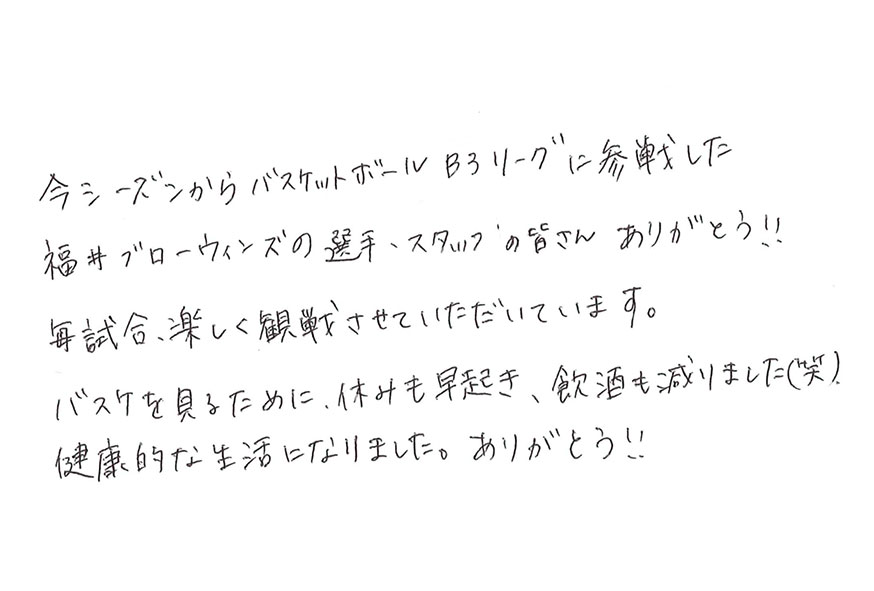 今シーズンからバスケットボール B3リーグに参戦した
福井ブローウィンズの選手、スタッフの皆さん ありがとう!!
毎試合、楽しく観戦させていただいています。
バスケを見るために、休みも早起き、飲酒も減りました(笑)
健康的な生活になりました。ありがとう!!